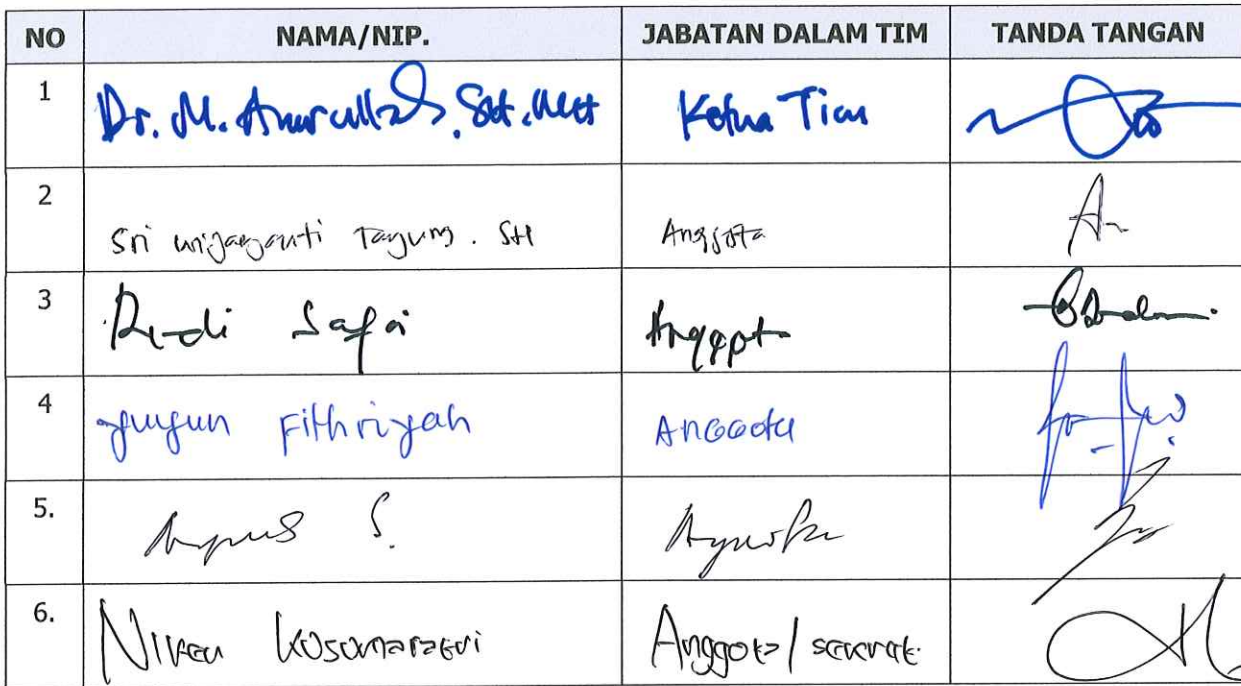 NO NAMA/NIP. JABATAN DALAM TIM TANDA TANGAN
1 Dr. M. Amrullah, SH. MH Ketua Tim
2 Sri wijayanti Tanjung. SH Anggota
3 Rudi Safa'i Anggota
4 yuyun Fithriyah Anggota
5. Agus S. Anggota
6. Niken Kosomaratri Anggota/sekret.